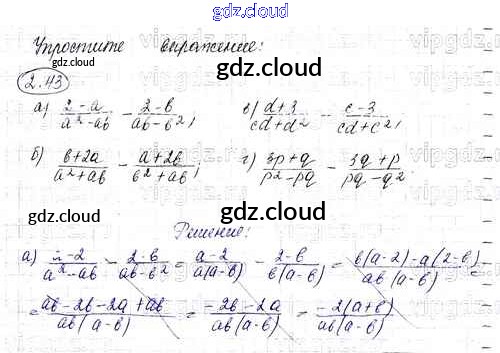 gdz.cloud
Упростите выражение:
gdz.cloud
2.43
а) (2-a)/(a²-ab) - (2-b)/(ab-b²); в) (d+3)/(cd+d²) - (c-3)/(cd+c²);
б) (b+2a)/(a²+ab) - (a+2b)/(b²+ab); г) (3p+q)/(p²-pq) - (3q+p)/(pq-q²)
gdz.cloud
gdz.cloud
Решение:
а) -2/(a²-ab) - (2-b)/(ab-b²) = (a-2)/(a(a-b)) - (2-b)/(b(a-b)) = (b(a-2)-a(2-b))/(ab(a-b)) =
= (ab-2b-2a+ab)/(ab(a-b)) = (-2b-2a)/(ab(a-b)) = (-2(a+b))/(ab(a-b))
gdz.cloud